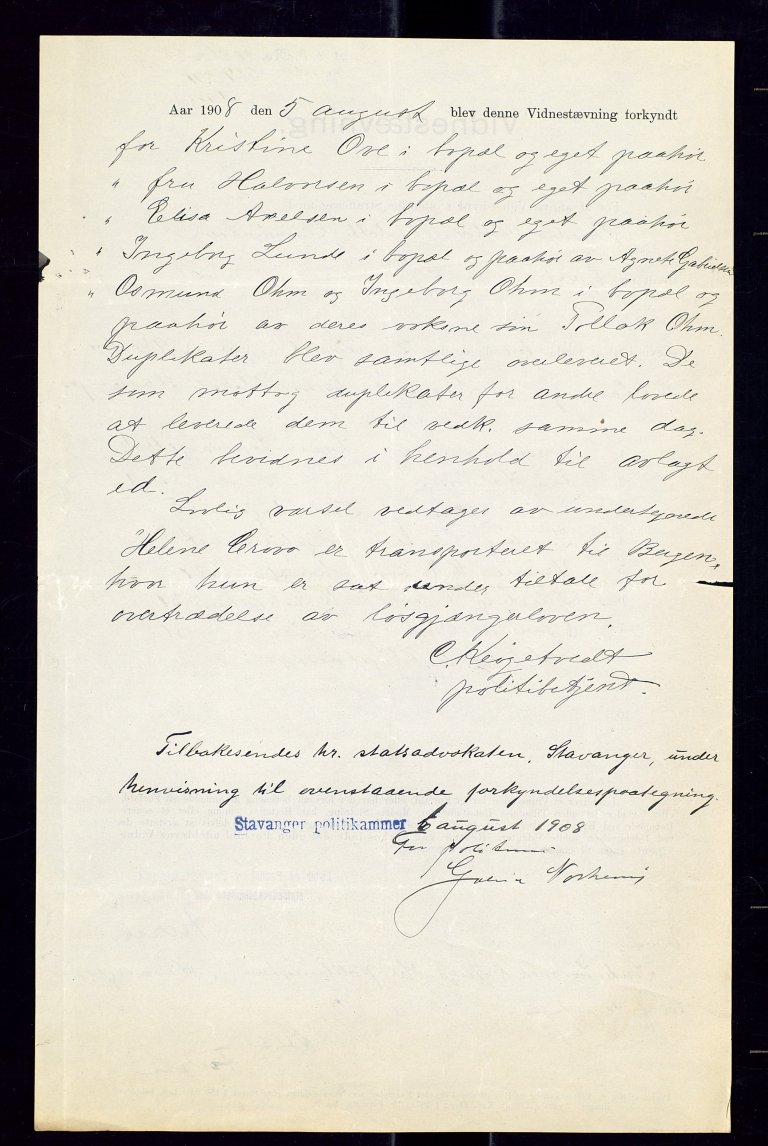 Aar 1908 den 5 august blev denne Vidnestævning forkyndt
for Kristine Ove i bopæl og eget paahør
" fru Halvorsen i bopæl og eget paahør
" Elisa Axelsen i bopæl og eget paahør
" Ingeborg Lunde i bopæl og paahør av Agnete Gabrielsen
" Osmund Ohm og Ingeborg Ohm i bopæl og
paahør av deres voksne søn Tollak Ohm.
Duplikater blev samtlige overleveret. De
som mottog duplikater for andre lovede
at leverede dem til vedk. samme dag.
Dette bevidnes i henhold til avlagt
ed.
Lovlig varsel vedtages av undertegnede
Helene Erovo er transporteret til Bergen,
hvor hun er sat under tiltale for
overtrædelse av løsgjængerloven.
C. Reigetvedt
politibetjent.
Tilbakesendes hr. statsadvokaten, Stavanger, under
henvisning til ovenstaaende forkyndelsespaategning.
Stavanger politikammer 6 august 1908